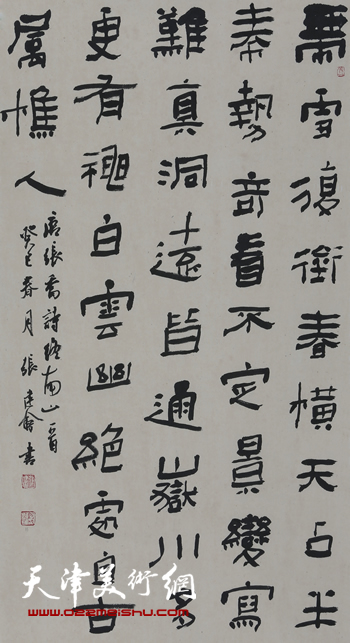 帶雪復銜春橫天占半
秦勢奇看不定景變寫
難真洞遠皆通嶽川多
更有神白雲幽絕處自古
屬樵人
唐張喬詩終南山一首
癸巳春月張建會書
天津美術網
www.022meishu.com